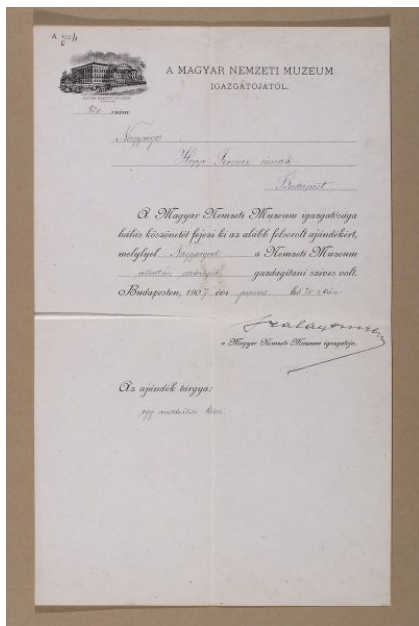 A MAGYAR NEMZETI MUZEUM
IGAZGATÓJÁTÓL.
szám.
Hopp Ferencz úrnak
Budapest
A Magyar Nemzeti Muzeum igazgatósága
hálás köszönetét fejezi ki az alább felsorolt ajándékért,
melylyel Nagyságod a Nemzeti Muzeum
osztályát gazdagitani szives volt.
Budapesten, 1907 évi junius hó 20 -án
a Magyar Nemzeti Muzeum igazgatója.
Az ajándék tárgya:
egy